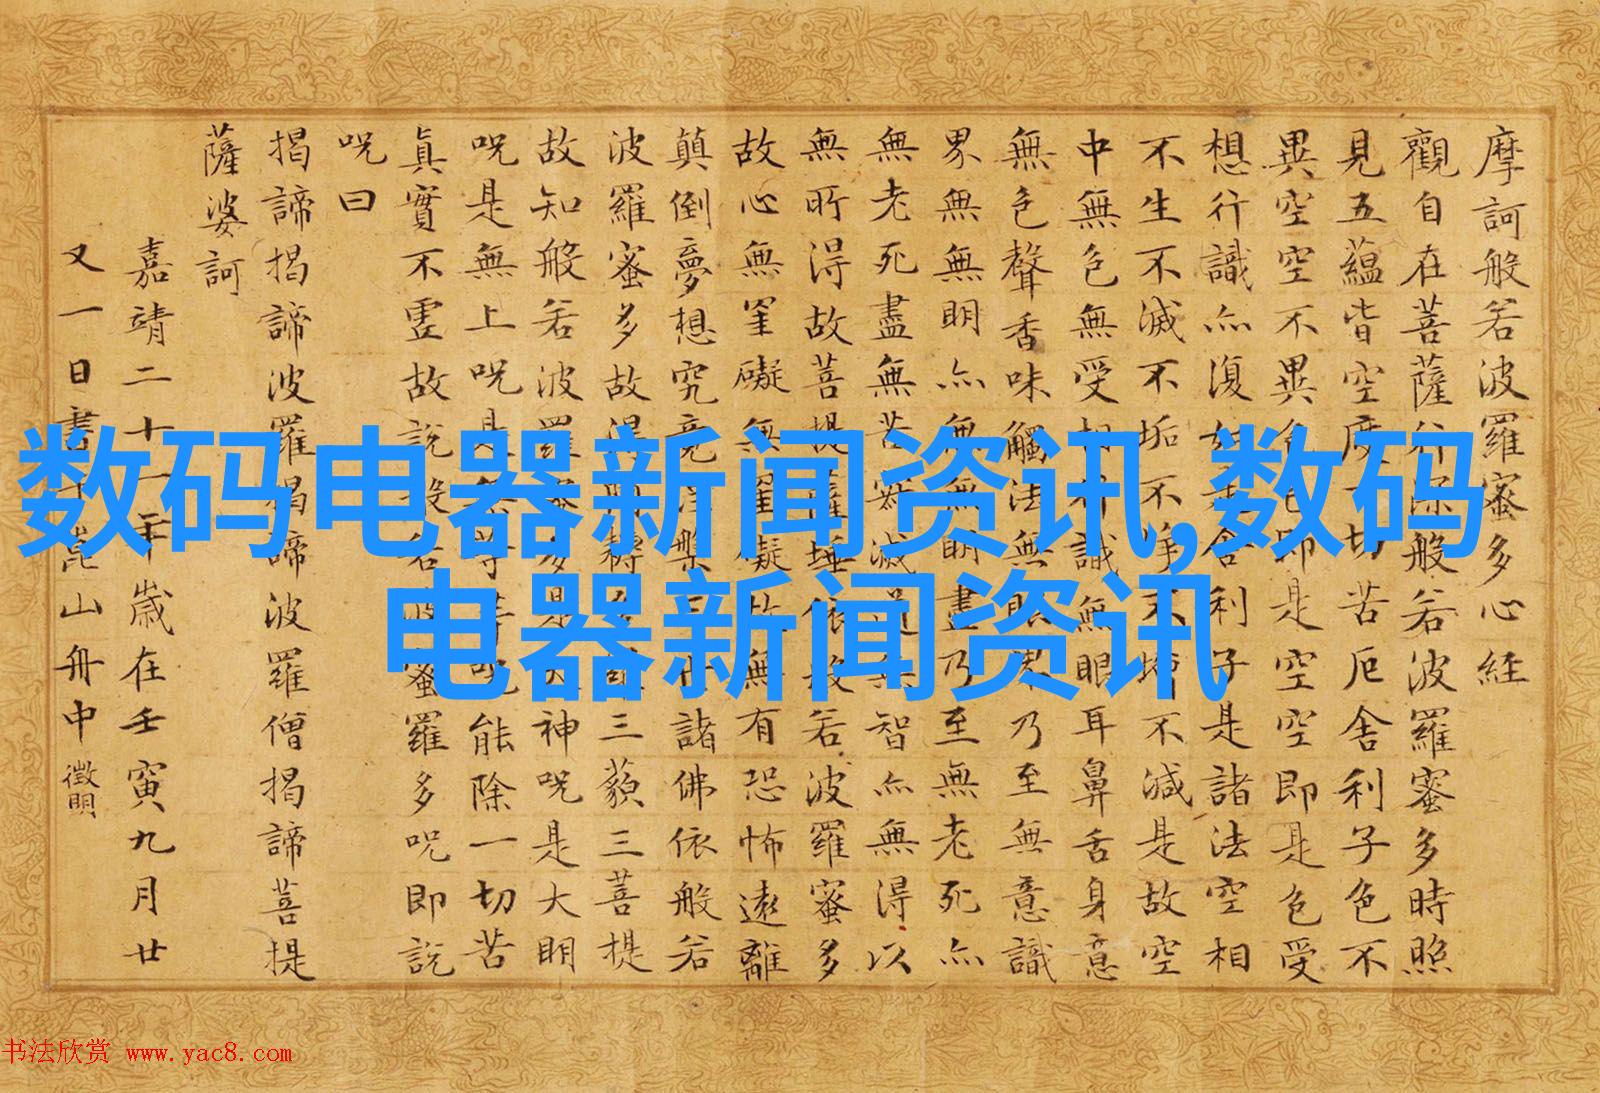 摩訶般若波羅蜜多心経
觀自在菩薩行深般若波羅蜜多時照
見五蘊皆空度一切苦厄舍利子色不
異空空不異色色即是空空即是色受
想行識亦復如是舍利子是諸法空相
不生不滅不垢不淨不增不減是故空
中無色無受想行識無眼耳鼻舌身意
無色聲香味觸法無眼界乃至無意識
界無無明亦無無明盡乃至無老死亦
無老死盡無苦寂滅道無智亦無得以
無所得故菩提薩埵依般若波羅蜜多
故心無罣礙無罣礙故無有恐怖遠離
顛倒夢想究竟涅槃三世諸佛依般若
波羅蜜多故得阿耨多羅三藐三菩提
故知般若波羅蜜多是大神呪是大明
呪是無上呪是無等等呪能除一切苦
真實不虛故說般若波蜜羅多呪即說
呪曰
揭諦揭諦波羅揭諦波羅僧揭諦菩提
薩婆訶
嘉靖二十一年歲在壬寅九月廿
又一日書于崑山舟中 徵明
数码电器新闻资讯,数码
电器新闻资讯
书法欣赏 www.yac8.com